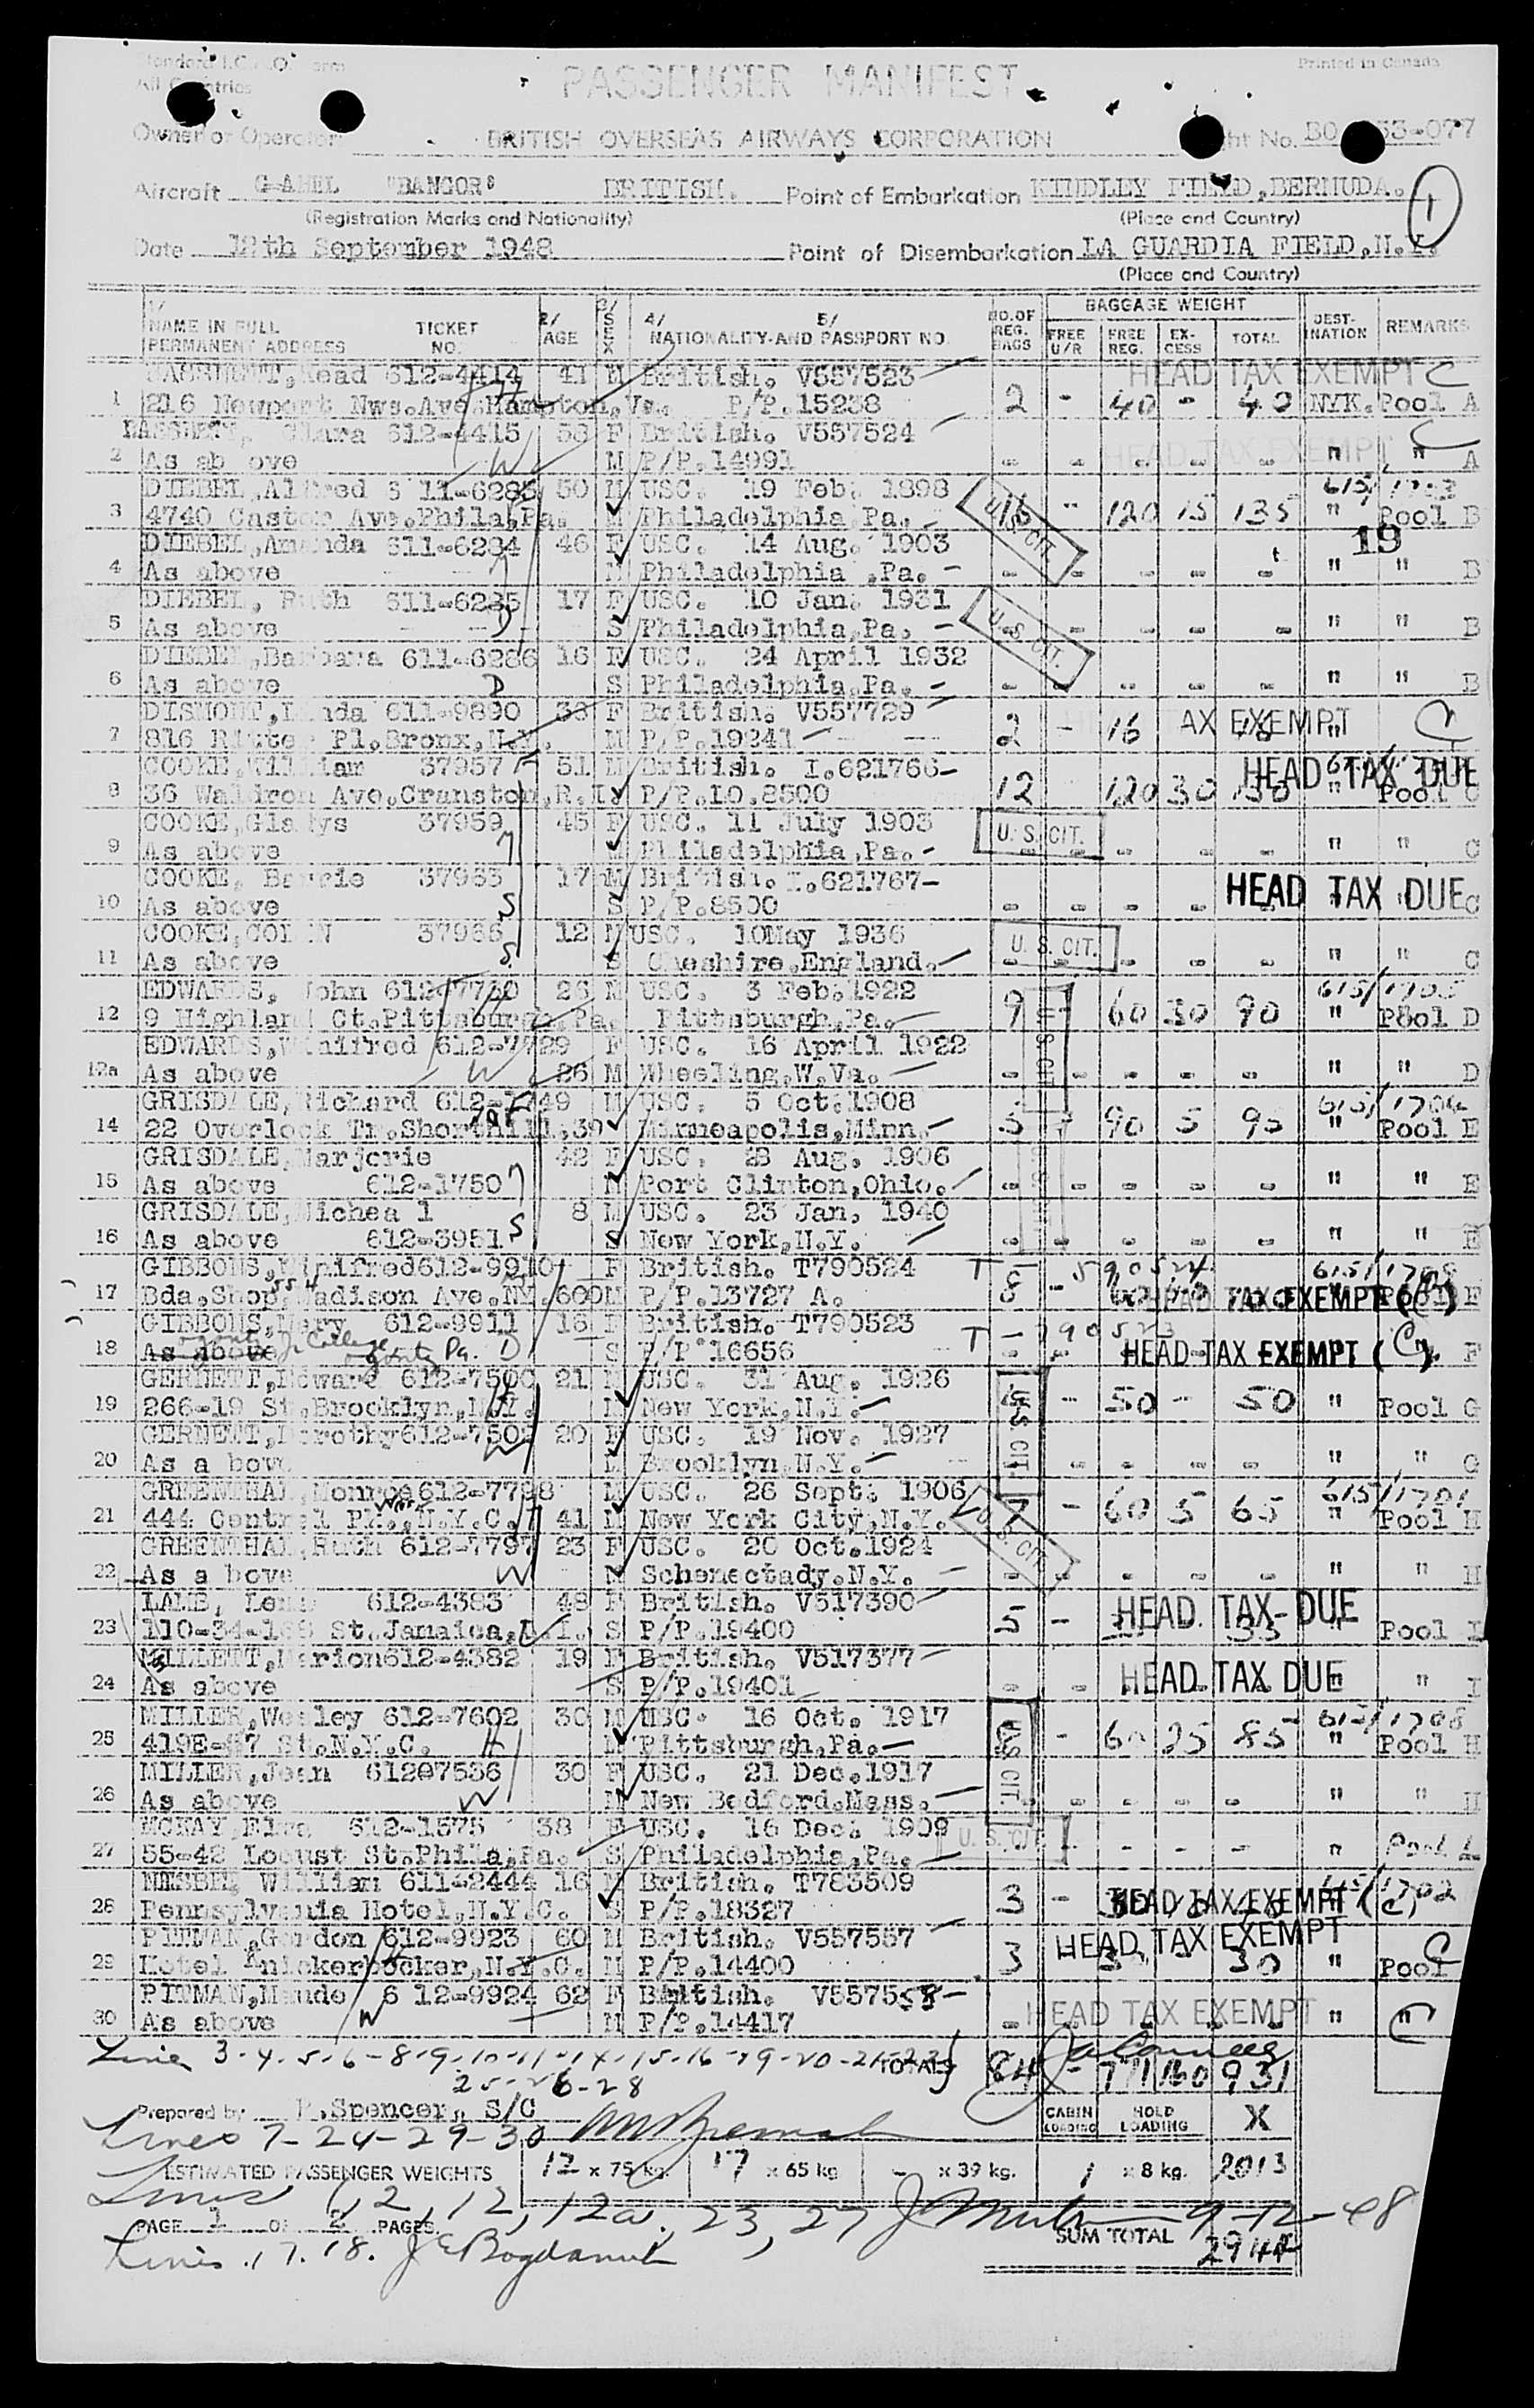 Standard I.C.A.O. Form
All Countries
PASSENGER MANIFEST
Printed in Canada
Owner or Operator BRITISH OVERSEAS AIRWAYS CORPORATION
Aircraft G-AHEL "BANGOR" BRITISH. Point of Embarkation KINDLEY FIELD,BERMUDA. 1
(Registration Marks and Nationality) (Place and Country)
Date 12th September 1948 Point of Disembarkation LA GUARDIA FIELD,N.Y.
(Place and Country)
1/ NAME IN FULL PERMANENT ADDRESS TICKET NO. 2/ AGE 3/ SEX 4/ 5/ NATIONALITY AND PASSPORT NO. NO.OF REG. BAGS BAGGAGE WEIGHT FREE U/R FREE REG. EX-CESS TOTAL DEST-INATION REMARKS
Mead 612-4414 41 M British. V557523 HEAD TAX EXEMPT C
1 216 Newport Nws.Ave.Hampton,Va. P/P.15238 2 - 40 - 40 NYK. Pool A
BASSHETT, Clara 612-4415 53 F British. V557524 C
2 As ab ove W M P/P.14991 - - - - - HEAD TAX EXEMPT " " A
DIEBEL,Alfred 6 11-6283 50 M USC. 19 Feb. 1898 615/
3 4740 Castor Ave.Phila,Pa. M Philadelphia Pa. - U.S. CIT. - 120 15 135 " Pool B
DIEBEL,Amanda 611-6284 46 F USC. 14 Aug. 1903 19
4 As above M Philadelphia ,Pa. - - - - - - " " B
DIEBEL, Ruth 611-6285 17 F USC. 10 Jan. 1931
5 As above D S Philadelphia,Pa. - U.S. CIT. - - - - - " " B
DIEBEL,Barbara 611-6286 16 F USC. 24 April 1932
6 As above D S Philadelphia,Pa. - - - - - - " " B
DISMONT,Linda 611-9890 38 F British. V557729 HEAD TAX EXEMPT C
7 816 Ritter Pl.Bronx,N.Y. M P/P.19241 2 - 16 - 16 "
COOKE,William 37957 51 M British. I.621766- HEAD TAX DUE
8 36 Waldron Ave.Cranston,R.I. P/P.LO.8500 12 120 30 150 " Pool C
COOKE,Gladys 37959 45 F USC. 11 July 1903 U. S. CIT.
9 As above M Philadelphia,Pa. - - - - - " " C
COOKE, Barrie 37963 17 M British. I.621767- HEAD TAX DUE
10 As above S S P/P.8500 - - - - - " " C
COOKE,COLIN 37966 12 M USC. 10May 1936 U. S. CIT.
11 As above S. S Cheshire,England. - - - - - " " C
EDWARDS, John 612-7730 26 M USC. 3 Feb.1922 615/1705
12 9 Highland Ct.Pittsburgh,Pa. Pittsburgh,Pa. 9 - 60 30 90 " Pool D
EDWARDS,Winifred 612-7729 F USC. 16 April 1922 U.S. CIT.
12a As above W 26 M Wheeling,W.Va. - - - - - " " D
GRISDALE,Richard 612-1749 M USC. 5 Oct.1908 615/1704
14 22 Overlook Tr.Shorthill,39 Minneapolis,Minn. 5 - 90 5 95 " Pool E
GRISDALE,Marjorie 42 F USC. 23 Aug. 1906
15 As above 612-1750 M Port Clinton,Ohio. - - - - - " " E
GRISDALE,Michea l 8 M USC. 23 Jan. 1940
16 As above 612-3951 S S New York,N.Y. - - - - - " " E
GIBBONS,Winifred612-9910 F British. T790524 T-590524 615/1708
17 Bda,Shop,Madison Ave.NY. 60 M P/P.13727 A. HEAD TAX EXEMPT (C) F
GIBBONS,Mary 612-9911 16 F British. T790523 T-790523
18 As above Ogontz Jr College Ogontz Pa. D S P/P 16656 HEAD TAX EXEMPT (C) F
GERNETT,Edward 612-7500 21 M USC. 31 Aug. 1926
19 266-19 St.Brooklyn,N.Y. M New York,N.Y. U.S. CIT. - 50 - 50 " Pool G
GERNETT,Dorothy612-7502 20 F USC. 19 Nov. 1927
20 As a bove W M Brooklyn.N.Y. - - - - " " G
GREENTHAL,Monroe612-7798 M USC. 26 Sept. 1906 615/1701
21 444 Central Pk.West,N.Y.C. 41 M New York City,N.Y. 7 - 60 5 65 " Pool H
GREENTHAL,Ruth 612-7797 23 F USC. 20 Oct.1924 U.S. CIT.
22 As a bove W M Schenectady.N.Y. - - - - - " " H
LAMB, Lena 612-4383 48 F British. V517390 HEAD TAX DUE
23 110-34-168 St.Jamaica,L.I. S P/P.19400 5 - 35 " Pool I
MILLETT,Marion612-4382 19 F British. V517377
24 As above S P/P.19401 - - HEAD TAX DUE " " I
MILLER,Wesley 612-7602 30 M USC. 16 Oct. 1917 615/1706
25 419E-57 St.N.Y.C. H M Pittsburgh,Pa. U.S. CIT. - 60 25 85 " Pool H
MILLER,Jean 61207536 30 F USC. 21 Dec.1917
26 As above W M New Bedford,Mass. - - - - " " H
MCKAY,Elva 612-1575 38 F USC. 16 Dec. 1909 U. S. CIT.
27 55-42 Locust St.Phila,Pa. S Philadelphia,Pa. - - - " Pool
William 611-2444 16 M British. T783509 615/1702
28 Pennsylvania Hotel,N.Y.C. S P/P.18327 3 - HEAD TAX EXEMPT (C)
PITMAN,Gordon 612-9923 60 M British. V557557 HEAD TAX EXEMPT
29 Hotel Knickerbocker,N.Y.C. M P/P.14400 3 30 - 30 " Pool C
PITMAN,Maude 6 12-9924 62 F British. V557558-
30 As above W M P/P.14417 - HEAD TAX EXEMPT " " C
Line 3-4-5-6-8-9-10-11-14-15-16-19-20-21-22
25-26-28
TOTALS 84 - 771 160 931
Prepared by P.Spencer, S/C
CABIN LOADING HOLD LOADING X
Lines 7-24-29-30
ESTIMATED PASSENGER WEIGHTS 12 x 75 kg. 17 x 65 kg - x 39 kg. 1 x 8 kg. 2013
Lines 1,2,12,12a,23,27 9-12-48
PAGE 1 OF 2 PAGES
SUM TOTAL 2944
Lines 17.18.